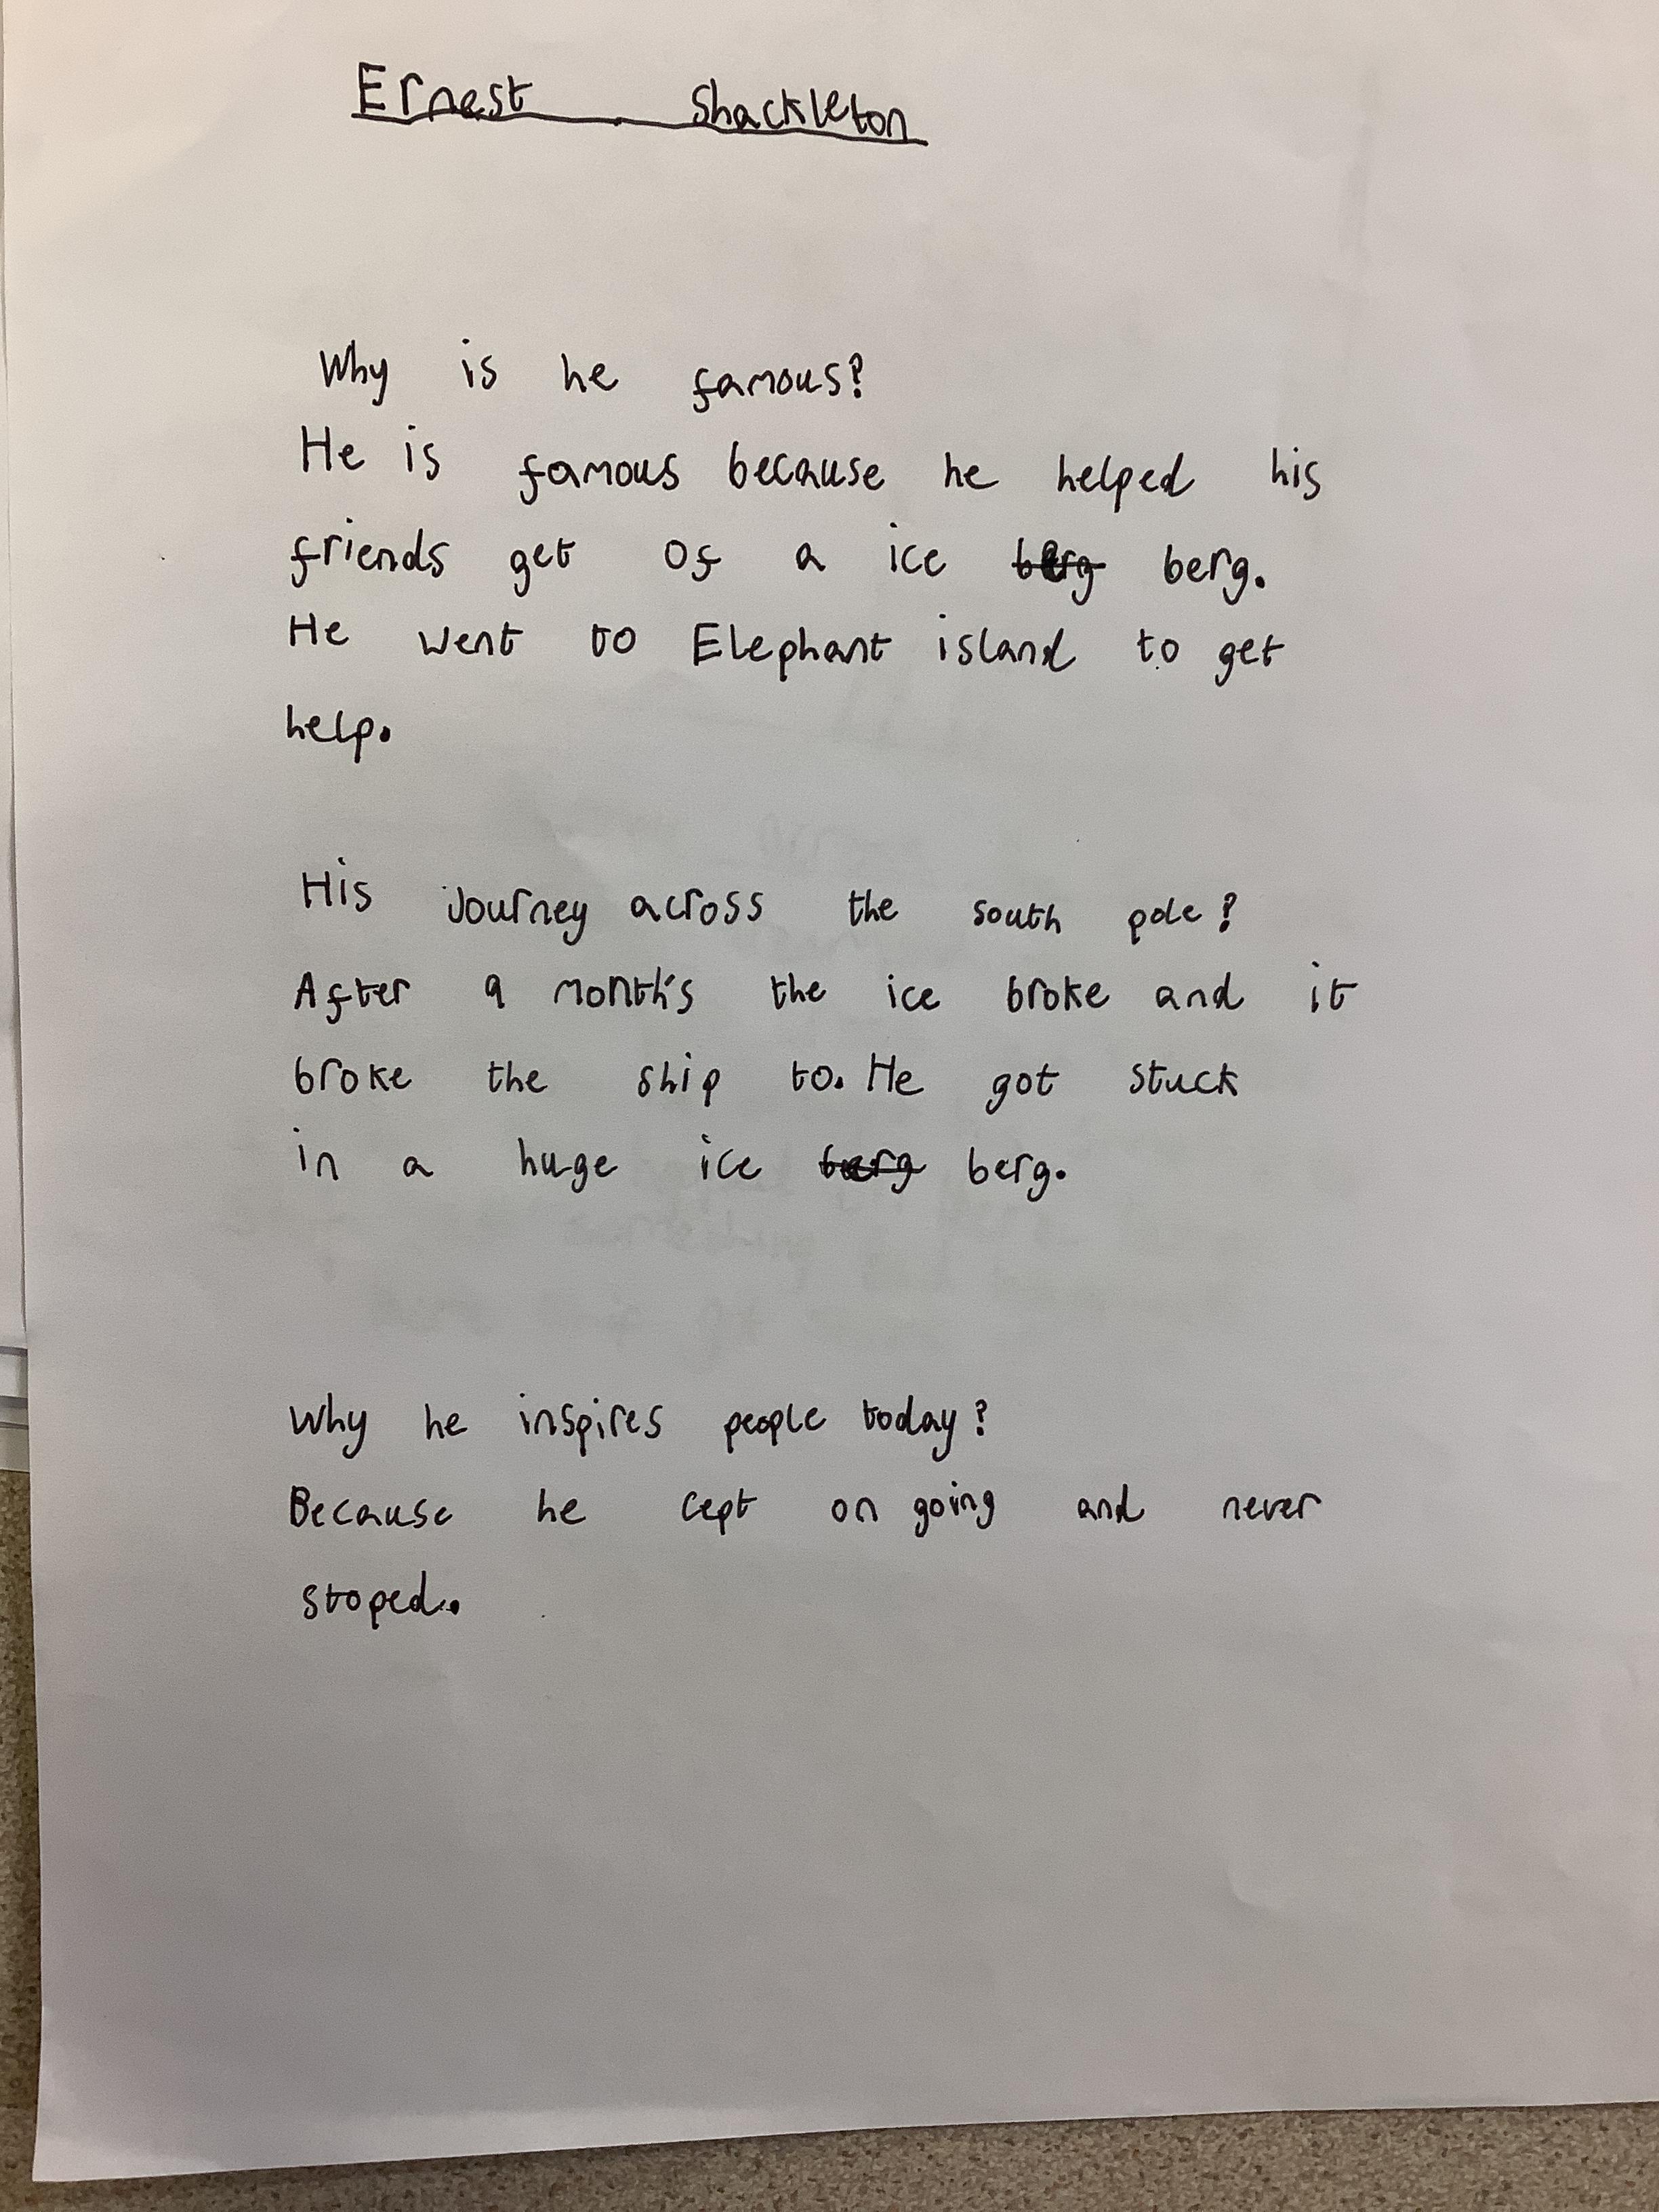 Ernest Shackleton
Why is he famous?
He is famous because he helped his
friends get of a ice berg.
He went to Elephant island to get
help.
His journey across the south pole?
After 9 month's the ice broke and it
broke the ship to. He got stuck
in a huge ice berg.
Why he inspires people today?
Because he cept on going and never
stoped.